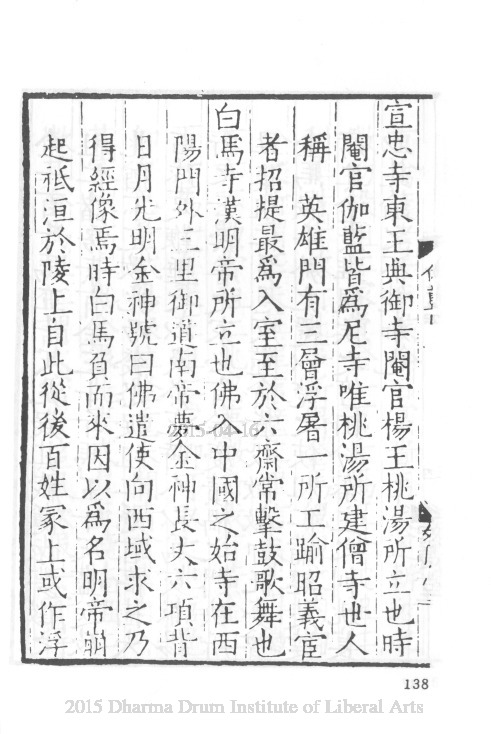 宣忠寺東王典御寺閹官楊王桃湯所立也時
閹官伽藍皆爲尼寺唯桃湯所建僧寺世人
稱 英雄門有三層浮屠一所工踰昭義宦
者招提最爲入室至於六齋常擊鼓歌舞也
白馬寺漢明帝所立也佛入中國之始寺在西
陽門外三里御道南帝夢金神長丈六項背
日月光明金神號曰佛遣使向西域求之乃
得經像焉時白馬負而來因以爲名明帝崩
起祇洹於陵上自此從後百姓冢上或作浮
2015-04-16
138
2015 Dharma Drum Institute of Liberal Arts